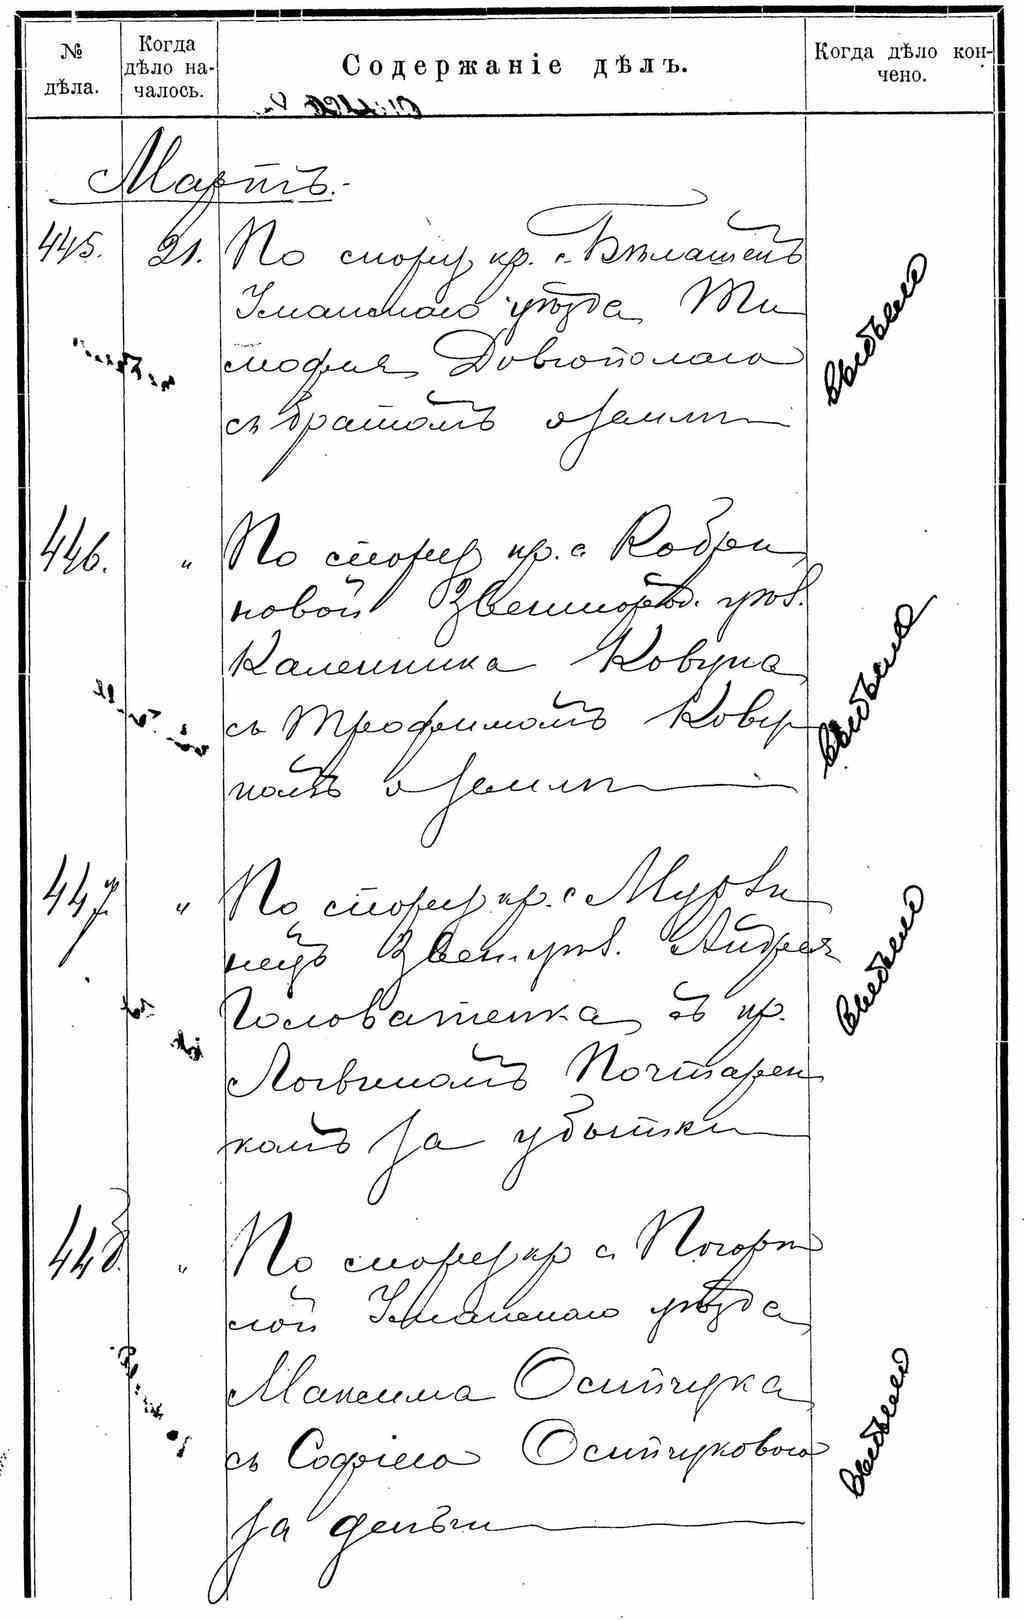 № дѣла.
Когда дѣло на-
чалось.
Содержаніе дѣлъ.
Когда дѣло кон-
чено.
Мартъ.
445. 21. По спору кр. с. Бѣлашекъ
Уманскаго уѣзда Ти
мофея Довгополаго
съ братомъ о землѣ
выбыло
446. " По спору кр. с. Кобри
новой Звенигород. уѣз.
Каленника Ковуна
съ Трофимомъ Кову
номъ о землѣ
выбыло
447. " По спору кр. с. Мурзи
нецъ Звен. уѣз. Андрея
Головатенка съ кр.
Логвиномъ Почтарен
комъ за убытки
выбыло
448. " По спору кр. с. Погорѣ
лой Уманскаго уѣзда
Максима Осипчука
съ Софіею Осипчуковою
за деньги
выбыло